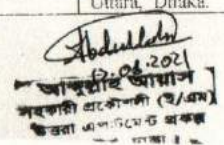 Uttara, Dhaka.
Abdullah
12.04.2021
আব্দুল্লাহ আল্লামা
সহকারী প্রকৌশলী (ই/এম)
উত্তরা এপার্টমেন্ট প্রকল্প
ঢাকা।